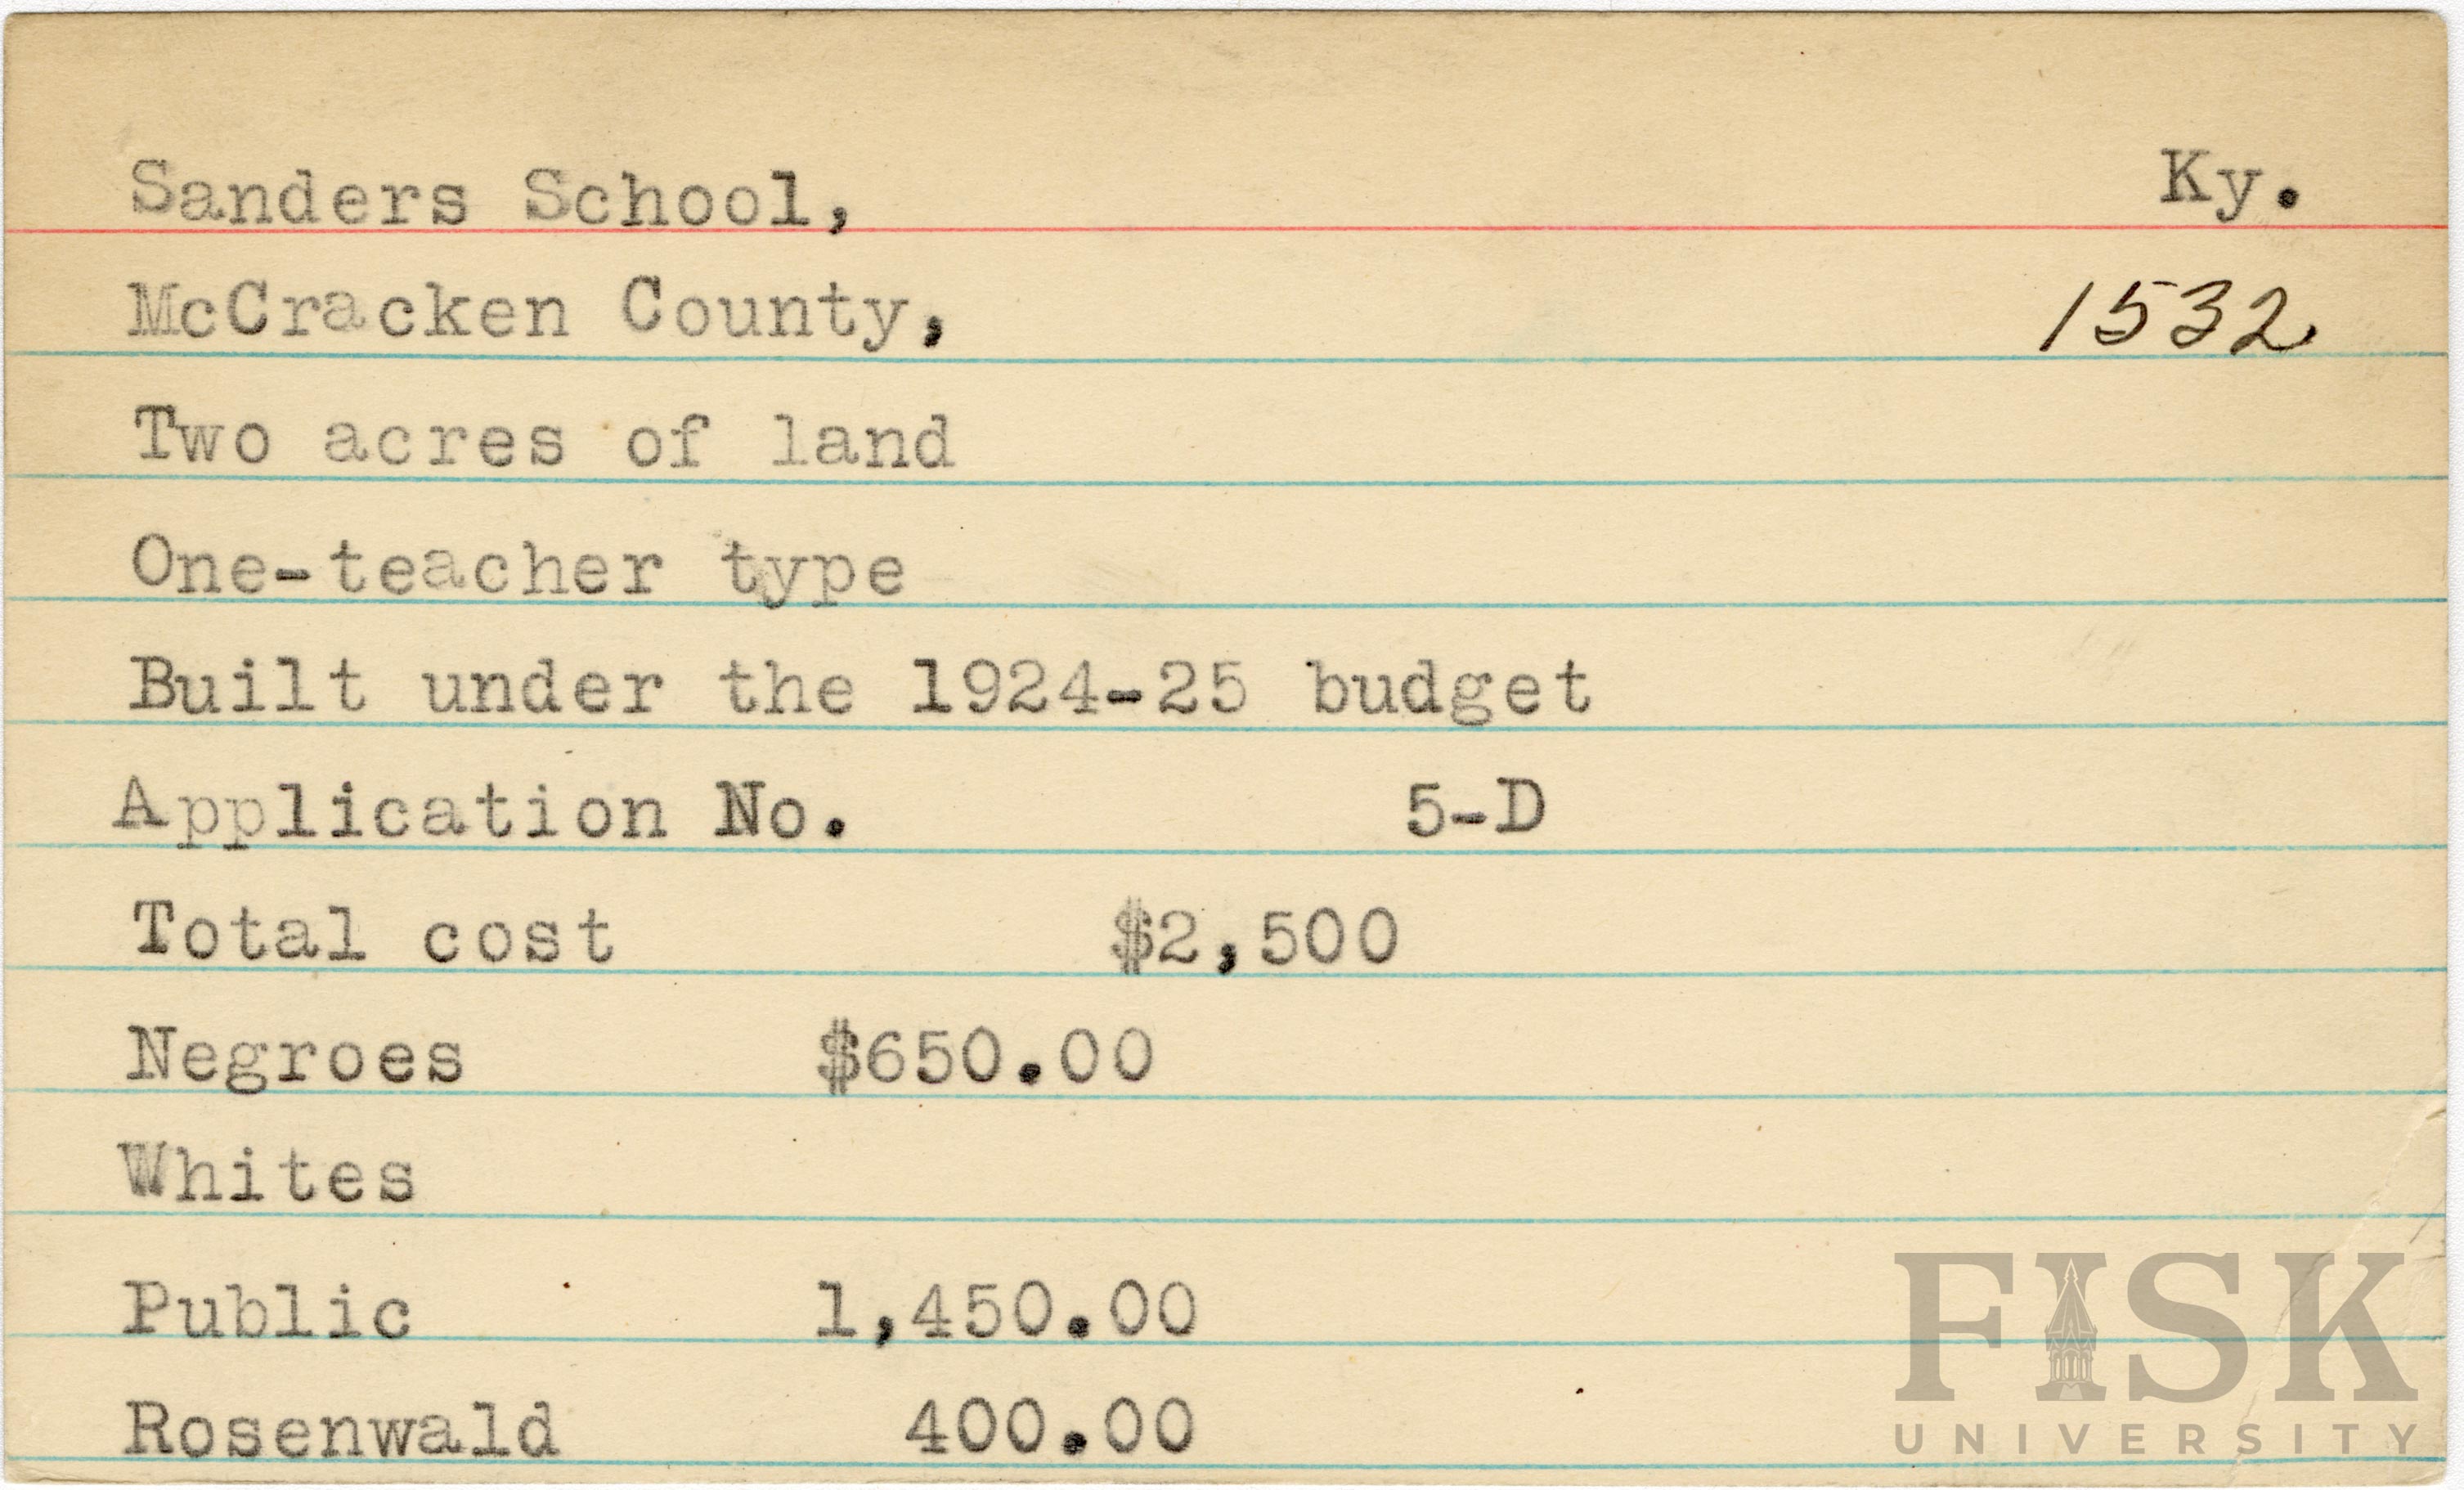 Sanders School, Ky.
McCracken County, 1532
Two acres of land
One-teacher type
Built under the 1924-25 budget
Application No. 5-D
Total cost $2,500
Negroes $650.00
Whites
Public 1,450.00
Rosenwald 400.00
FISK
UNIVERSITY